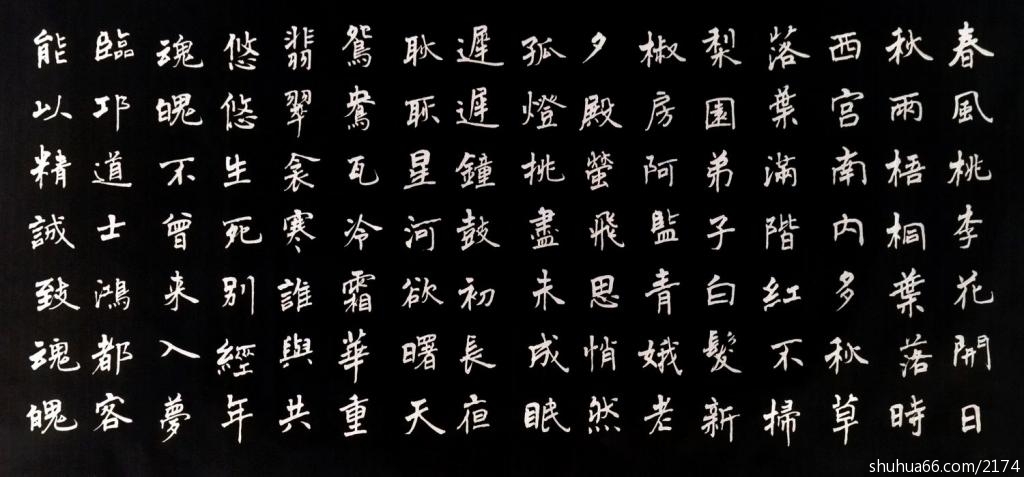 春風桃李花開日
秋雨梧桐葉落時
西宮南内多秋草
落葉滿階紅不掃
梨園弟子白髮新
椒房阿監青娥老
夕殿螢飛思悄然
孤燈挑盡未成眠
遲遲鐘鼓初長夜
耿耿星河欲曙天
鴛鴦瓦冷霜華重
翡翠衾寒誰與共
悠悠生死別經年
魂魄不曾来入夢
臨邛道士鴻都客
能以精誠致魂魄
shuhua66.com/2174